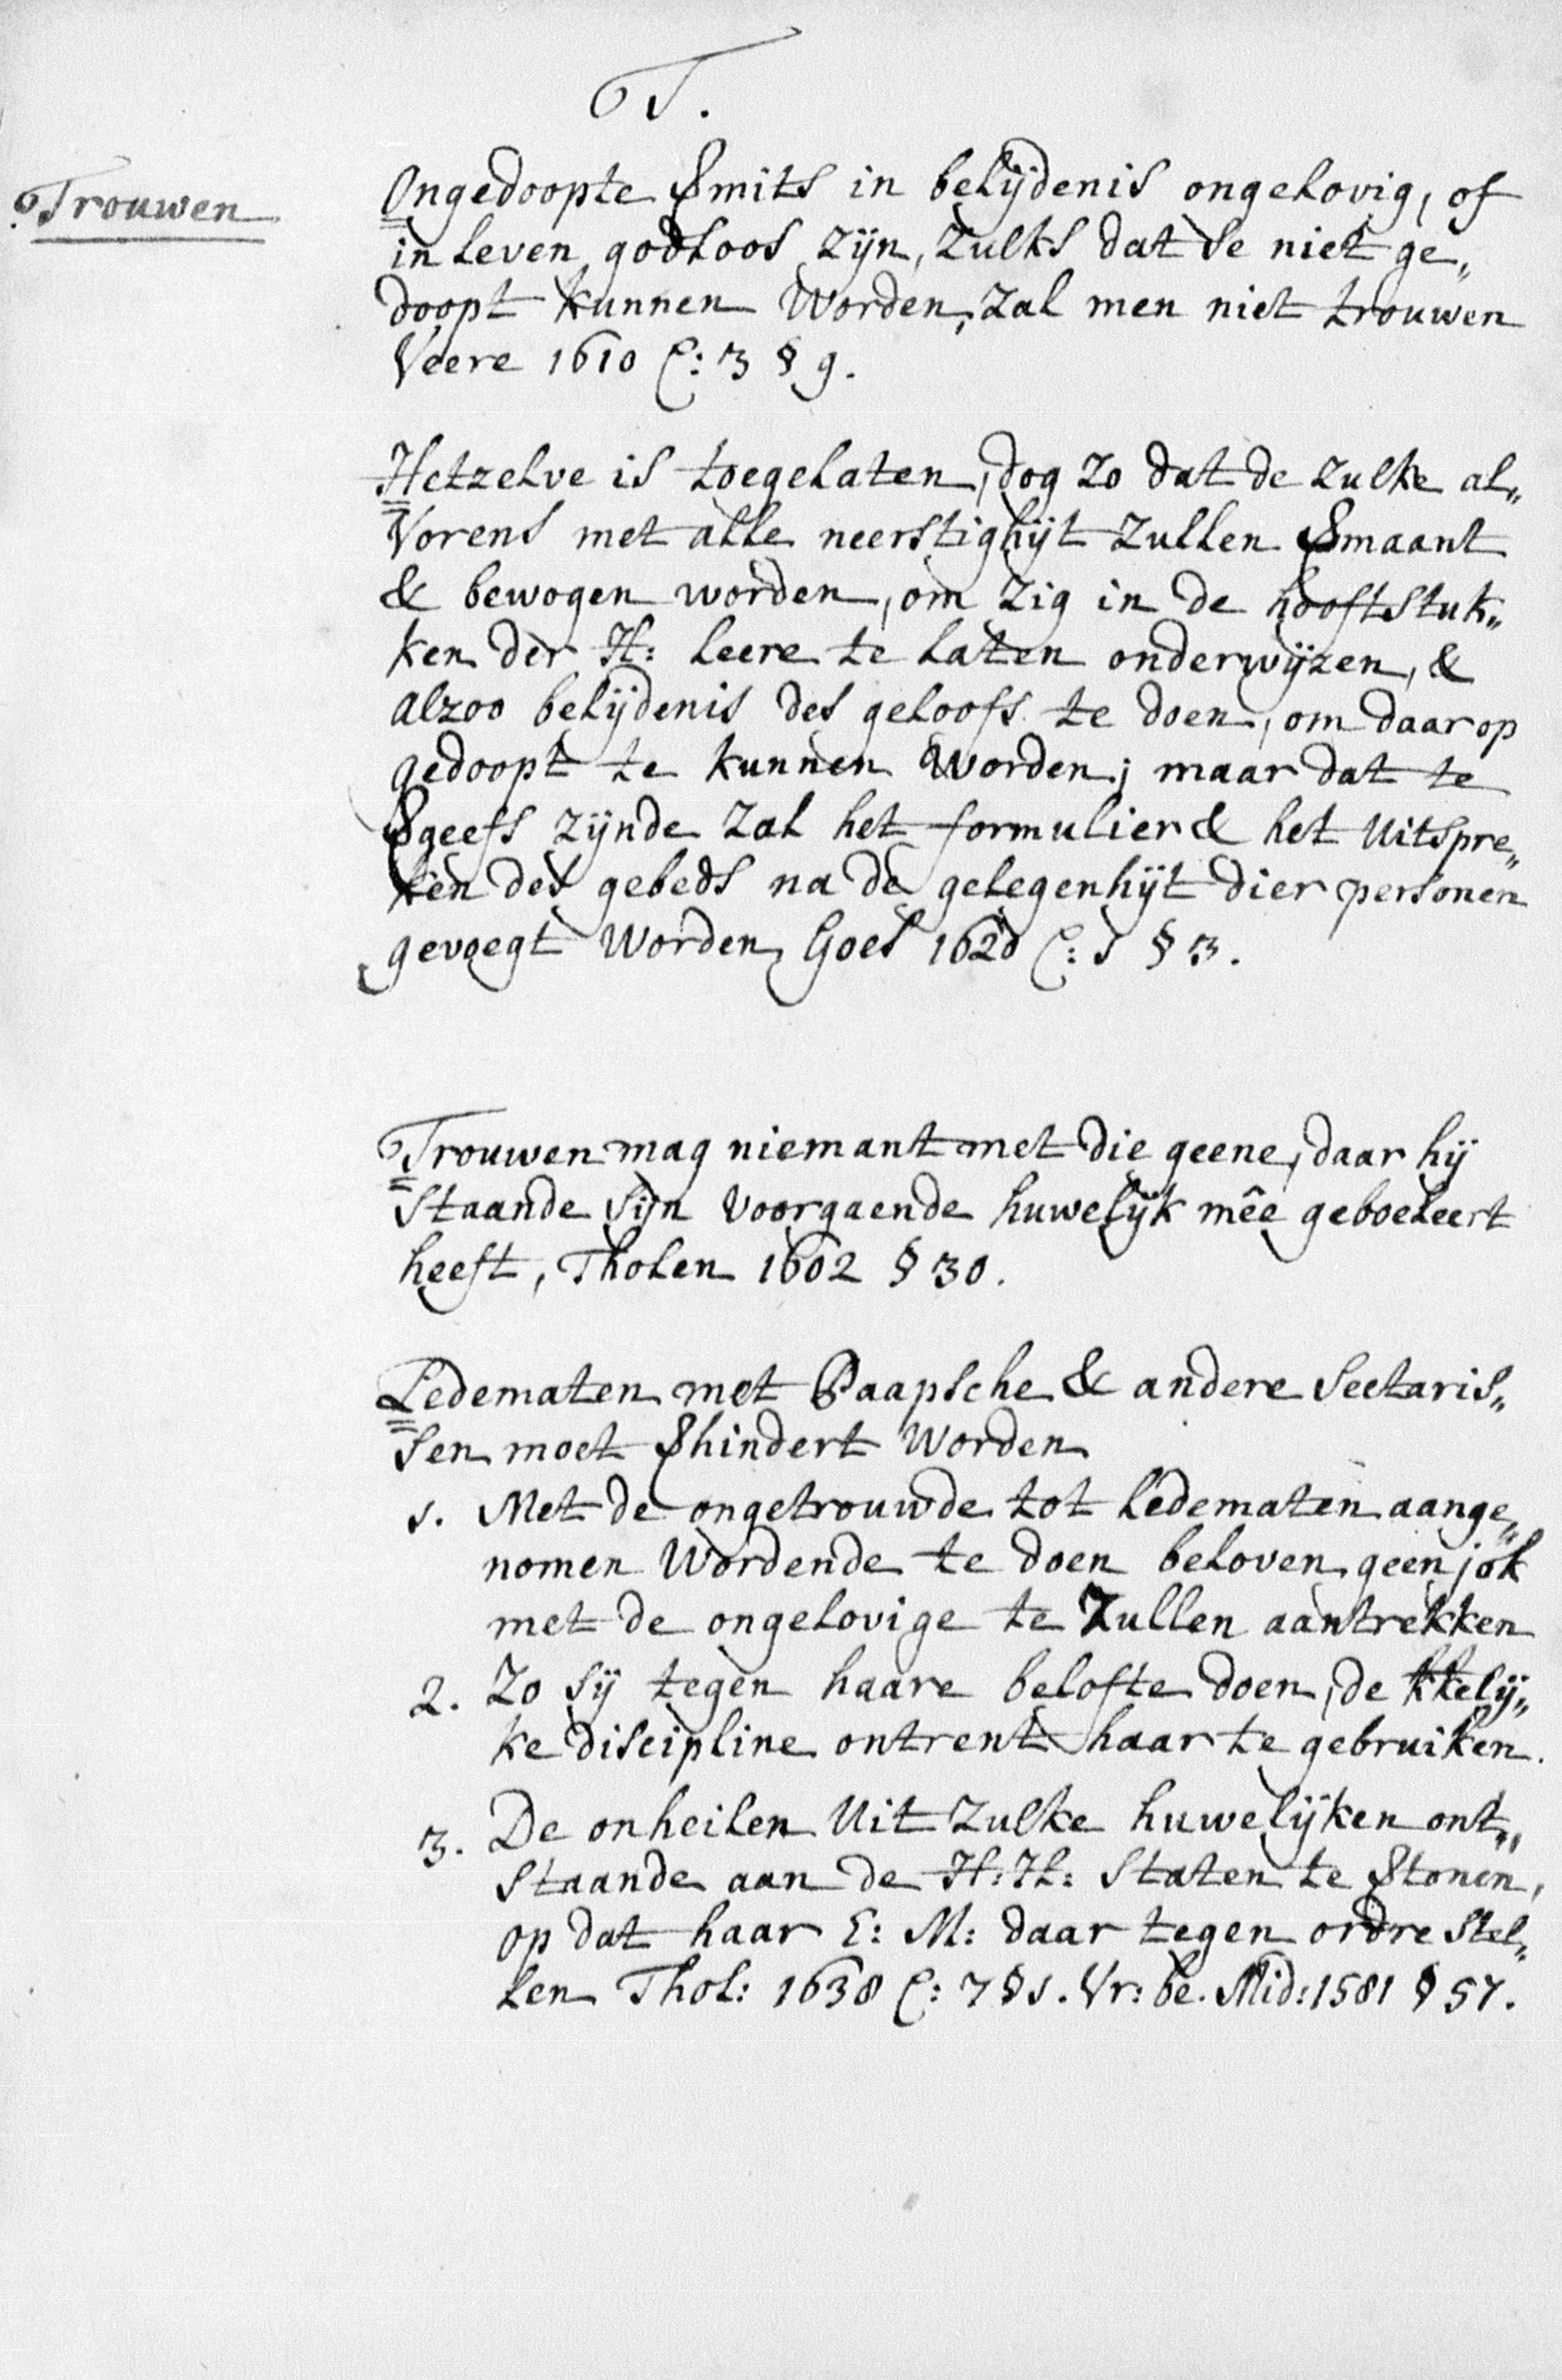 T.
Trouwen
Ongedoopte Smits in belijdenis ongelovig, of
in leven godloos zijn, zulks dat se niet ge„
doopt kunnen worden, zal men niet trouwen
Veere 1610 C: 3 § 9.
Hetzelve is toegelaten, dog zo dat de zulke al„
vorens met alle neerstighijt zullen vmaant
& bewogen worden, om zig in de hooftstuk„
ken der H: leere te laten onderwijzen, &
alzoo belijdenis des geloofs te doen, om daar op
gedoopt te kunnen worden; maar dat te
vgeefs zijnde zal het formulier & het uitspre„
ken des gebeds na de gelegenhijt dier personen
gevoegt worden Goes 1620 C: 1 § 3.
Trouwen mag niemant met die geene, daar hij
staande sijn voorgaende huwelijk mêe geboeleert
heeft, Tholen 1602 § 30.
Ledematen met Paapsche & andere Sectaris„
sen moet vhindert worden
1. Met de ongetrouwde tot ledematen aange„
nomen wordende te doen beloven geen jok
met de ongelovige te zullen aantrekken
2. Zo sij tegen haare belofte doen, de kkelij„
ke discipline ontrent haar te gebruiken.
3. De onheilen uit zulke huwelijken ont„
staande aan de H: H: Staten te vtonen,
op dat haar E: M: daar tegen ordre stel„
len Thol: 1638 C: 7 § 1. Vr: be. Mid: 1581 § 57.